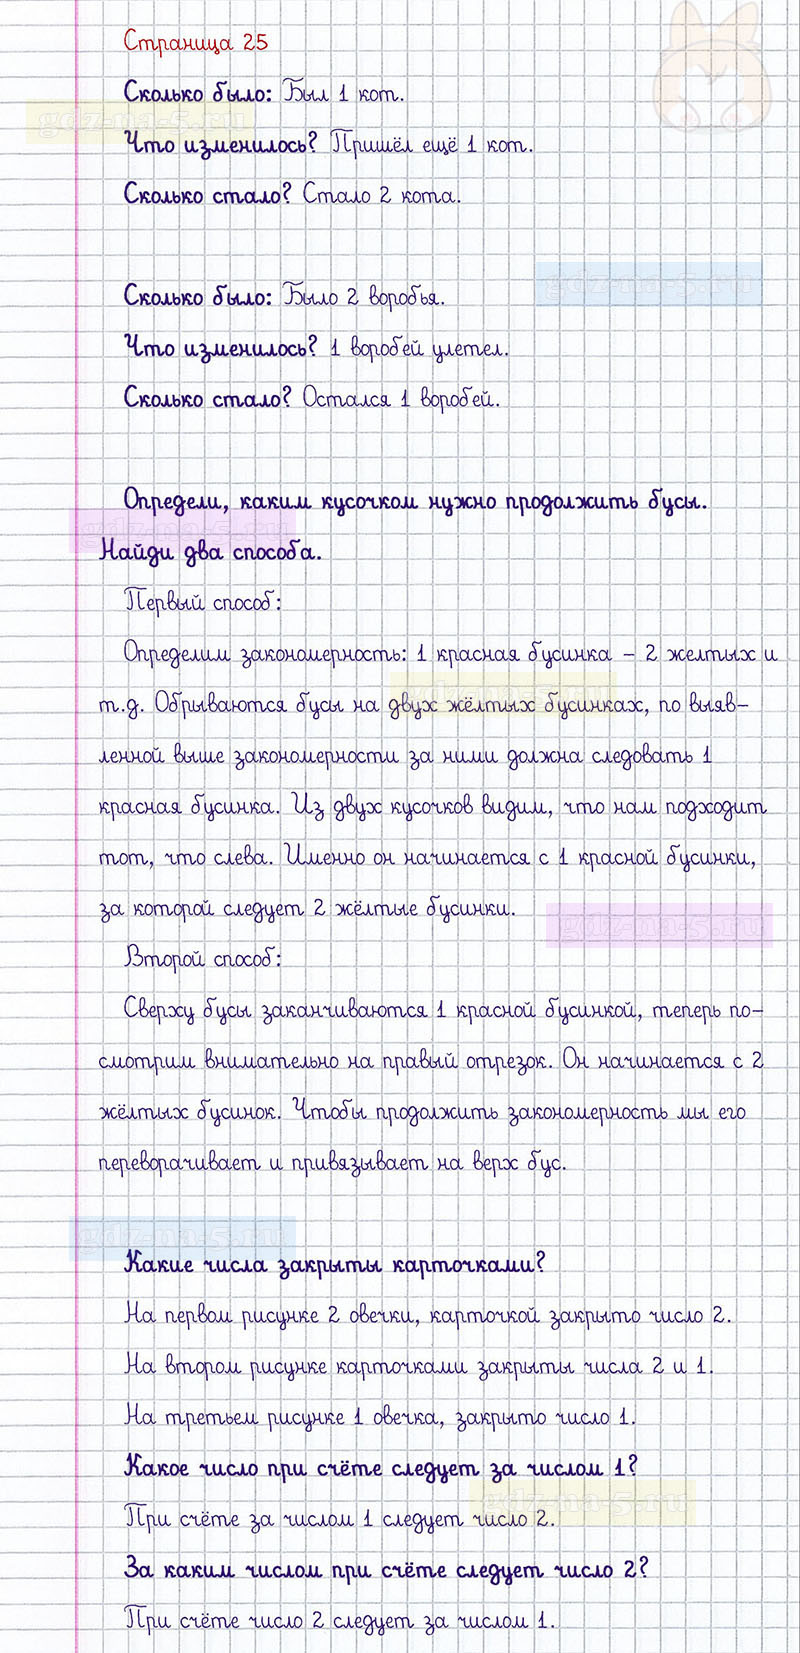 Страница 25
Сколько было: Был 1 кот.
gdz-na-5.ru
Что изменилось? Пришёл ещё 1 кот.
Сколько стало? Стало 2 кота.
gdz-na-5.ru
Сколько было: Было 2 воробья.
Что изменилось? 1 воробей улетел.
Сколько стало? Остался 1 воробей.
Определи, каким кусочком нужно продолжить бусы.
gdz-na-5.ru
Найди два способа.
Первый способ:
Определим закономерность: 1 красная бусинка – 2 желтых и
gdz-na-5.ru
т.д. Обрываются бусы на двух жёлтых бусинках, по выяв-
ленной выше закономерности за ними должна следовать 1
красная бусинка. Из двух кусочков видим, что нам подходит
тот, что слева. Именно он начинается с 1 красной бусинки,
за которой следует 2 жёлтые бусинки.
gdz-na-5.ru
Второй способ:
Сверху бусы заканчиваются 1 красной бусинкой, теперь по-
смотрим внимательно на правый отрезок. Он начинается с 2
жёлтых бусинок. Чтобы продолжить закономерность мы его
переворачивает и привязывает на верх бус.
gdz-na-5.ru
Какие числа закрыты карточками?
На первом рисунке 2 овечки, карточкой закрыто число 2.
На втором рисунке карточками закрыты числа 2 и 1.
На третьем рисунке 1 овечка, закрыто число 1.
Какое число при счёте следует за числом 1?
gdz-na-5.ru
При счёте за числом 1 следует число 2.
За каким числом при счёте следует число 2?
При счёте число 2 следует за числом 1.